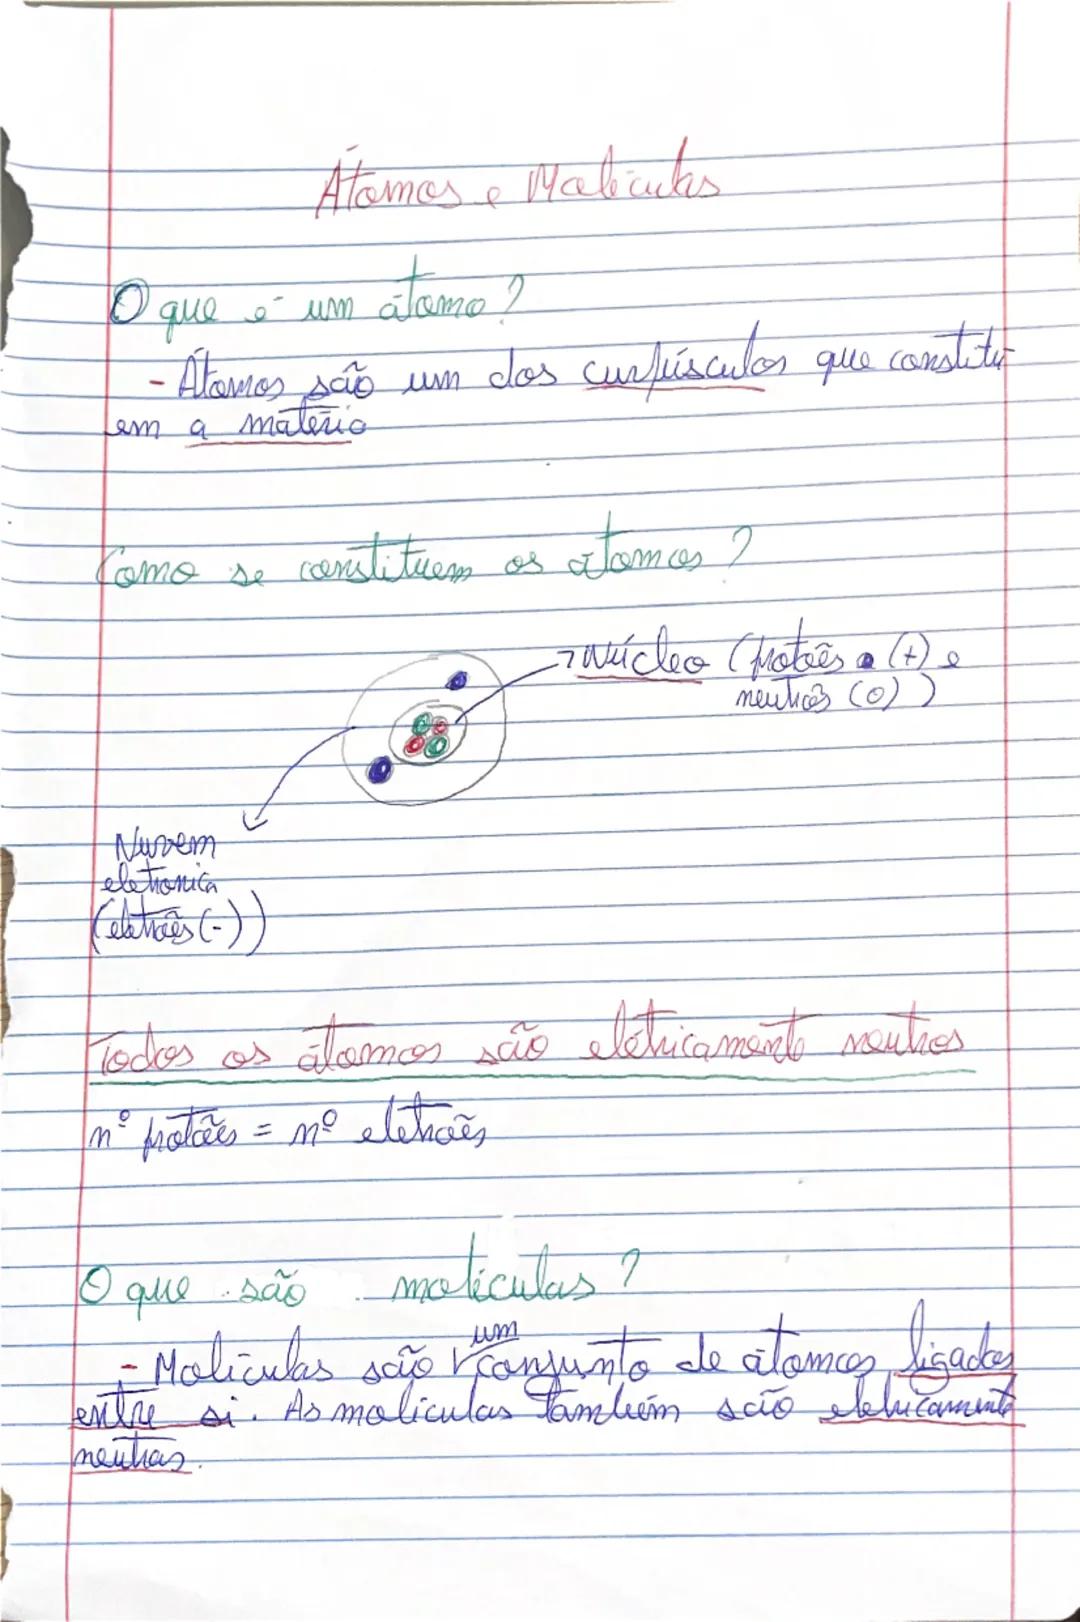 Átomos e Moléculas
O que é um átomo?
- Átomos são um dos curpúsculos que constitu-
em a matéria
Como se constituem os átomos?
Núcleo (protões (+) e
neutrões (0))
Nuvem
eletronica
(eletrões (-))
Todos os átomos são eletricamente neutros
nº protões = nº eletrões
O que são moléculas?
um
- Moléculas são conjunto de átomos ligados
entre si. As moléculas também são eletricamente
neutras.